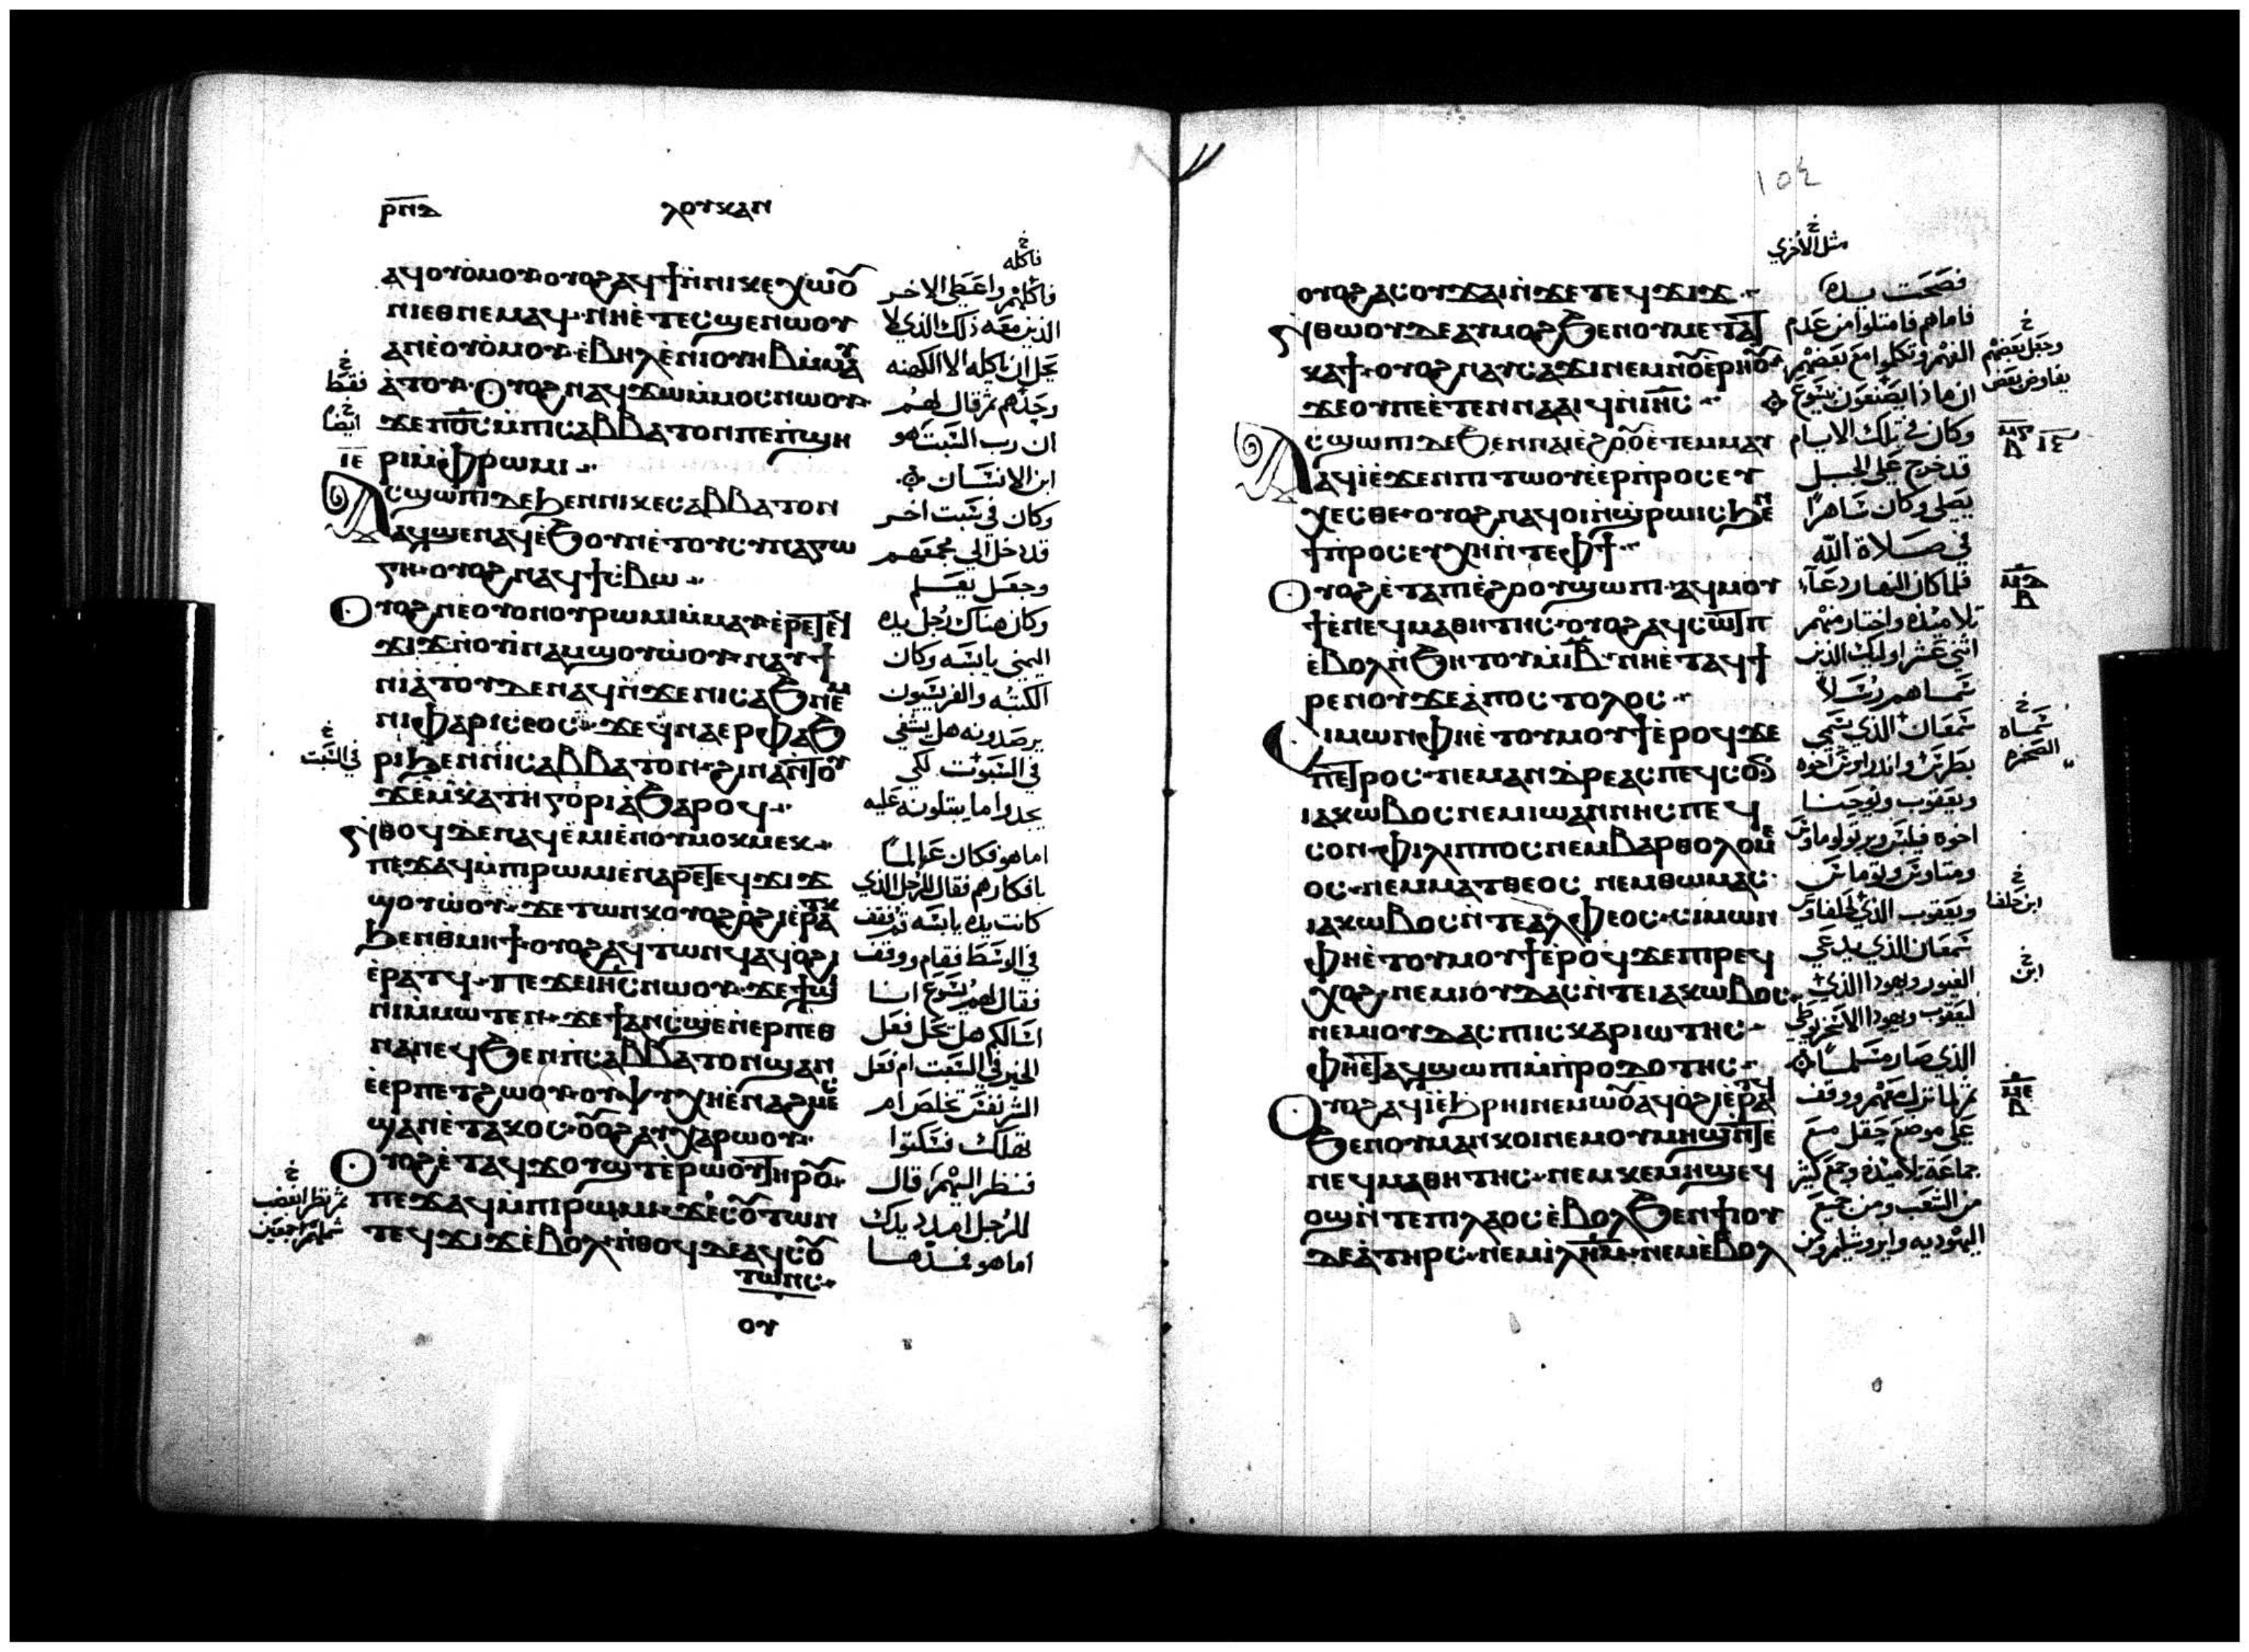 ⲣⲛⲇ
ⲗⲟⲩⲕⲁⲛ
ⲁϥⲟⲩⲟⲙⲟⲩ ⲟⲩⲟϩ ⲁϥϯ ⲛⲛⲓⲕⲉⲭⲱⲟ
ⲛⲓⲉⲑⲛⲉⲙⲁϥ ⲛⲏⲉⲧⲉⲥϣⲉ ⲛⲱⲟⲩ
ⲁⲛ ⲉⲟⲩⲟⲙⲟⲩ ⲉⲃⲏⲗ ⲉⲛⲓⲟⲩⲏⲃ ⲙⲙⲁ
ⲁⲧⲟⲩ Ⲟⲩⲟϩ ⲛⲁϥϫⲱ ⲙⲙⲟⲥ ⲛⲱⲟⲩ
ϫⲉ ⲡⲟⲥ ⲙⲡⲓⲥⲁⲃⲃⲁⲧⲟⲛ ⲡⲉ ⲡϣⲏ
ⲣⲓ ⲙⲫⲣⲱⲙⲓ
Ⲁⲥϣⲱⲡⲓ ⲇⲉ ϧⲉⲛ ⲛⲓⲕⲉⲥⲁⲃⲃⲁⲧⲟⲛ
ⲁϥϣⲉⲛⲁϥ ⲉϧⲟⲩⲛ ⲉⲧⲟⲩⲥⲩⲛⲁⲅⲱ
ⲅⲏ ⲟⲩⲟϩ ⲛⲁϥϯⲥⲃⲱ
Ⲟⲩⲟϩ ⲛⲉ ⲟⲩⲟⲛ ⲟⲩⲣⲱⲙⲓ ⲙⲙⲁⲩ ⲉⲣⲉ ⲧⲉϥ
ϫⲓϫ ⲛⲟⲩⲓⲛⲁⲙ ϣⲟⲩⲱⲟⲩ ⲛⲁⲩϯ
ⲛⲓⲁⲧⲟⲩ ⲇⲉ ⲛⲁϥ ⲛϫⲉ ⲛⲓⲥⲁϧ ⲛⲉⲙ
ⲛⲓⲫⲁⲣⲓⲥⲉⲟⲥ ϫⲉ ϥⲛⲁⲉⲣⲫⲁϧ
ⲣⲓ ϧⲉⲛ ⲛⲓⲥⲁⲃⲃⲁⲧⲟⲛ ϩⲓⲛⲁ ⲛⲧⲟⲩ
ϫⲉⲙ ⲕⲁⲧⲏⲅⲟⲣⲓⲁ ϧⲁⲣⲟϥ
ⲛⲑⲟϥ ⲇⲉ ⲛⲁϥⲉⲙⲓ ⲉⲛⲟⲩⲙⲟⲕⲙⲉⲕ
ⲡⲉϫⲁϥ ⲙⲡⲓⲣⲱⲙⲓ ⲉⲛⲁⲣⲉ ⲧⲉϥϫⲓϫ
ϣⲟⲩⲱⲟⲩ ϫⲉ ⲧⲱⲛⲕ ⲟⲩⲟϩ ⲟϩⲓ ⲉⲣⲁⲧⲕ
ϧⲉⲛ ⲑⲙⲏϯ ⲟⲩⲟϩ ⲁϥⲧⲱⲛϥ ⲁϥⲟϩⲓ
ⲉⲣⲁⲧϥ ⲡⲉϫⲉ ⲓⲏⲥ ⲛⲱⲟⲩ ϫⲉ ϯϣⲓ
ⲛⲓ ⲙⲙⲱⲧⲉⲛ ϫⲉ ϯⲁⲛ ⲥϣⲉ ⲛⲉⲣⲡⲉⲑ
ⲛⲁⲛⲉϥ ϧⲉⲛ ⲡⲥⲁⲃⲃⲁⲧⲟⲛ ϣⲁⲛ
ⲉⲉⲣⲡⲉⲧϩⲱⲟⲩ ⲟⲩⲯⲩⲭⲏ ⲉⲛⲁϩⲙⲉⲥ
ϣⲁⲛ ⲉⲧⲁⲕⲟⲥ ⲟⲟϩ ⲁⲩⲭⲁⲣⲱⲟⲩ
Ⲟⲩⲟϩ ⲉⲧⲁϥϫⲟⲩϣⲧ ⲉⲣⲱⲟⲩ ⲧⲏⲣⲟ
ⲡⲉϫⲁϥ ⲙⲡⲓⲣⲱⲙⲓ ϫⲉ ⲥⲟⲩⲧⲱⲛ
ⲧⲉϥϫⲓϫ ⲉⲃⲟⲗ ⲛⲑⲟϥ ⲇⲉ ⲁϥⲥⲟ
ⲧⲱⲛⲥ
ⲟⲩ
فاكله
فاكلهم واعطي الاخر
الذين معه ذلك الذي لا
يحل ان ياكله الا الكهنه
وحدهم ثم قال لهم
ان رب السبت هو
ابن الانسان
وكان في سبت اخر
قد دخل الي مجمعهم
وجعل يعلم
وكان هناك رجل يده
اليمني يابسه وكان
الكتبه والفريسيون
يرصدونه هل يشفي
في السبوت لكي
يجدوا ما يبتلونه عليه
اما هو فكان عالما
بافكارهم فقال للرجل الذي
كانت يده يابسه قم فقف
في الوسط فقام ووقف
فقال لهم يسوع انا
اسالكم هل يحل فعل
الخير في السبت ام فعل
الشر نفس تخلص ام
تهلك فسكتوا
فنظر اليهم قال
للرجل امدد يدك
اما هو فمدها
فقط
ايضا
ⲓⲉ
في السبت
١٥٤
مثل الاخري
ⲟⲩⲟϩ ⲁⲥⲟⲩϫⲁⲓ ⲛϫⲉ ⲧⲉϥϫⲓϫ
ⲛⲑⲱⲟⲩ ⲇⲉ ⲁⲩⲙⲟϩ ϧⲉⲛ ⲟⲩⲙⲉⲧⲁⲧ
ⲕⲁϯ ⲟⲩⲟϩ ⲛⲁⲩⲥⲁϫⲓ ⲛⲉⲙ ⲛⲟⲩⲉⲣⲏⲟⲩ
ϫⲉ ⲟⲩ ⲡⲉ ⲉⲧⲉⲛⲛⲁⲁⲓϥ ⲛⲓⲏⲥ
Ⲁⲥϣⲱⲡⲓ ⲇⲉ ϧⲉⲛ ⲛⲁⲓⲉϩⲟⲟⲩ ⲉⲧⲉⲙⲙⲁⲩ
ⲁϥⲓ ⲉϫⲉⲛ ⲡⲓⲧⲱⲟⲩ ⲉⲉⲣⲡⲣⲟⲥⲉⲩ
ⲭⲉⲥⲑⲉ ⲟⲩⲟϩ ⲛⲁϥⲟⲓ ⲛϣⲣⲱⲓⲥ ϧⲉⲛ
ϯⲡⲣⲟⲥⲉⲩⲭⲏ ⲛⲧⲉ ⲫϯ
Ⲟⲩⲟϩ ⲉⲧⲁ ⲡⲓⲉϩⲟⲟⲩ ϣⲱⲡⲓ ⲁϥⲙⲟⲩ
ϯ ⲉⲛⲉϥⲙⲁⲑⲏⲧⲏⲥ ⲟⲩⲟϩ ⲁϥⲥⲱⲧⲡ
ⲉⲃⲟⲗ ⲛϧⲏⲧⲟⲩ ⲙⲓⲃ ⲛⲏⲉⲧⲁϥϯ
ⲣⲉⲛⲟⲩ ϫⲉ ⲁⲡⲟⲥⲧⲟⲗⲟⲥ
Ⲥⲓⲙⲱⲛ ⲫⲏⲉⲧⲟⲩⲙⲟⲩϯ ⲉⲣⲟϥ ϫⲉ
ⲡⲉⲧⲣⲟⲥ ⲛⲉⲙ ⲁⲛⲇⲣⲉⲁⲥ ⲡⲉϥⲥⲟⲛ
ⲓⲁⲕⲱⲃⲟⲥ ⲛⲉⲙ ⲓⲱⲁⲛⲛⲏⲥ ⲡⲉϥ
ⲥⲟⲛ ⲫⲓⲗⲓⲡⲡⲟⲥ ⲛⲉⲙ ⲃⲁⲣⲑⲟⲗⲟⲙⲉ
ⲟⲥ ⲛⲉⲙ ⲙⲁⲧⲑⲉⲟⲥ ⲛⲉⲙ ⲑⲱⲙⲁⲥ
ⲓⲁⲕⲱⲃⲟⲥ ⲛⲧⲉ ⲁⲗⲫⲉⲟⲥ ⲥⲓⲙⲱⲛ
ⲫⲏⲉⲧⲟⲩⲙⲟⲩϯ ⲉⲣⲟϥ ϫⲉ ⲡⲓⲣⲉϥ
ⲭⲟϩ ⲛⲉⲙ ⲓⲟⲩⲇⲁⲥ ⲛⲧⲉ ⲓⲁⲕⲱⲃⲟⲥ
ⲛⲉⲙ ⲓⲟⲩⲇⲁⲥ ⲡⲓⲥⲕⲁⲣⲓⲱⲧⲏⲥ
ⲫⲏⲉⲧⲁϥϣⲱⲡⲓ ⲙⲡⲣⲟⲇⲟⲧⲏⲥ
Ⲟⲩⲟϩ ⲁϥⲓ ⲉϧⲣⲏⲓ ⲛⲉⲙⲱⲟ ⲁϥⲟϩⲓ ⲉⲣⲁⲧϥ
ϧⲉⲛ ⲟⲩⲙⲁ ⲛⲕⲟⲓ ⲛⲉⲙ ⲟⲩⲙⲏϣ ⲛⲧⲉ
ⲛⲉϥⲙⲁⲑⲏⲧⲏⲥ ⲛⲉⲙ ⲕⲉⲙⲏϣ ⲉϥ
ⲟϣ ⲛⲧⲉ ⲡⲓⲗⲁⲟⲥ ⲉⲃⲟⲗ ϧⲉⲛ ϯⲓⲟⲩ
ⲇⲉⲁ ⲧⲏⲣⲥ ⲛⲉⲙ ⲓⲗⲏⲙ ⲛⲉⲙ ⲉⲃⲟⲗ
فصحت يده
فاما هم فامتلوا من عدم
الفهم وتكلموا مع بعضهم
ان ماذا يصنعون بيسوع
وكان في تلك الايام
قد خرج علي الجبل
يصلي وكان ساهرا
في صلاة الله
فلما كان النهار دعا
تلاميذه واختار منهم
اثني عشر اوليك الذين
سماهم رسلا
سمعان الذي سمي
بطرس واندراوس اخوه
ويعقوب ويوحنا
اخوه فيلبس وبرتولوماوس
ومتاوس وتوماس
ويعقوب الذي لحلفاوس
سمعان الذي يدعي
الغيور ويهودا الذي
ليعقوب ويهودا الاسخريوطي
الذي صار مسلما
ثم لما نزل معهم ووقف
علي موضع حقل مع
جماعة تلاميذه وجمع كثير
من الشعب ومن جميع
اليهوديه وايروشليم ومن
وجعل بعضهم
يفاوض بعض
ⲙⲅ ⲓⲉ
ⲙⲇ
سماه
الصخره
ابن حلفا
ابن
ⲙⲉ